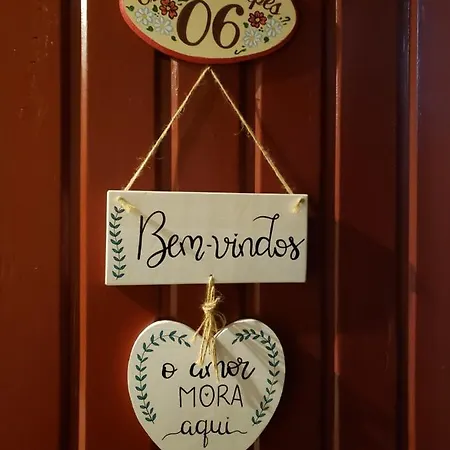 06
Bem-vindos
o amor
MORA
aqui